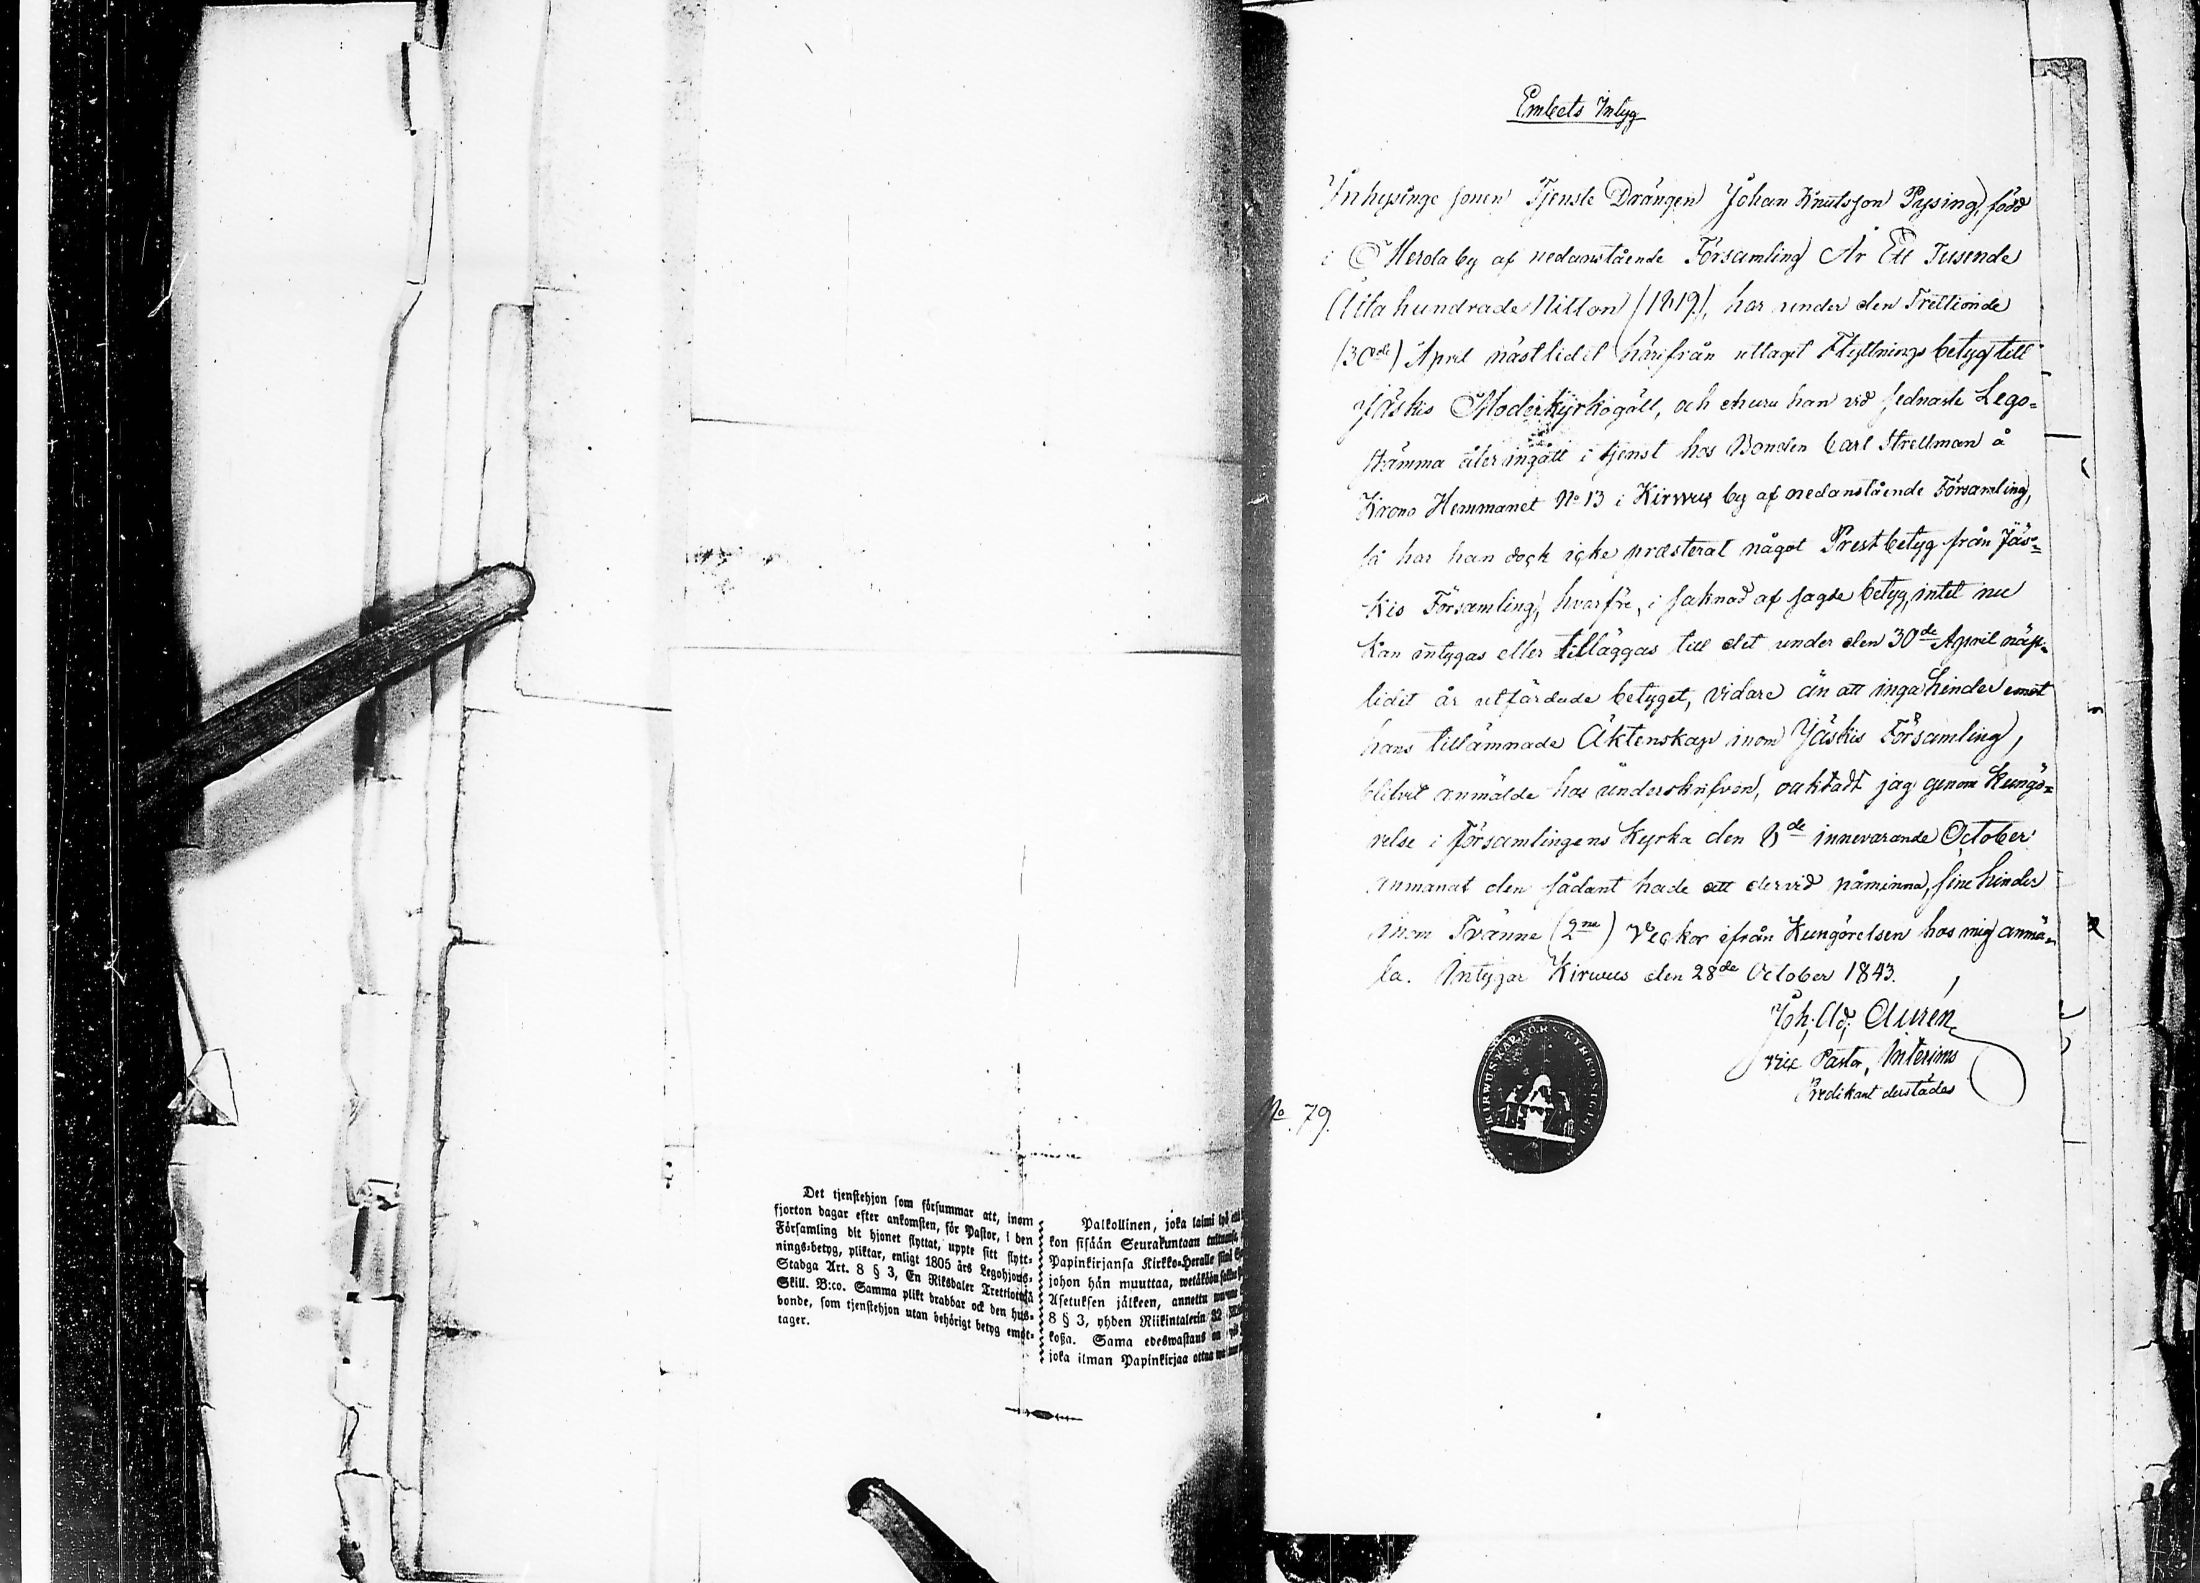 Det tjenstehjon som försummar att, inom
fjorton dagar efter ankomsten, för Pastor, i den
Församling dit hjonet flyttat, uppte sitt flytt-
nings-betyg, pliktar, enligt 1805 års Legohjons-
Stadga Art. 8 § 3, En Riksdaler Trettiotvå
Skill. B:co. Samma plikt drabbar ock den hus-
bonde, som tjenstehjon utan behörigt betyg emot-
tager.
Palkollinen, joka laimi lyö
kon sisään Seurakuntaan
Papinkirjansa Kirkko-Heralle
johon hän muuttaa, wetäköön
Asetuksen jälkeen, annettu
8 § 3, yhden Riikintalerin 32
koßa. Sama edeswastaus on
joka ilman Papinkirjaa ottaa
Embets Intyg
Inhysinge sonen Tjenste Drängen Johan Knutsson Pysing, född
i Herola by af nedanstående Församling År Ett Tusende
Åtta hundrade Nitton (1819), har under den Trettionde
(30de) April nästlidit härifrån uttagit Flyttnings betyg till
Jäskis Moderkyrkogäll, och ehuru han vid sednaste Lego-
stämma åter ingått i tjenst hos Bonden Carl Strellman å
Krono Hemmanet No 13 i Kirwus by af nedanstående Församling,
så har han dock icke præsterat något Prestbetyg från Jäs-
kis Församling, hvarföre, i saknad af sagde betyg, intet nu
kan intygas eller tilläggas till det under den 30de April näst-
lidit år utfärdade betyget, vidare än att inga hinder emot
hans tillämnade Äktenskap inom Jäskis Församling,
blifvit anmälde hos underskrifven, oaktadt jag genom Kungö-
relse i Församlingens Kyrka den 8de innevarande October
anmanat den sådant hade att dervid påminna, sine hinder
inom Tvänne (2ne) Veckor ifrån Kungörelsen hos mig anmä-
la. Intygar Kirwus den 28de October 1843.
Joh. Ad. Aurén
Vice Pastor, Interims
Predikant derstädes
KIRWUS KAP. FÖRS. KYRKOSIGILL
No. 79.